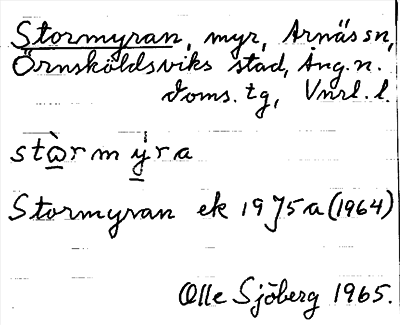 Stormyran, myr, Arnäs sn,
Örnsköldsviks stad, Ång.n.
doms. tg, Vnrl. l.
stὼrm ýra
Stormyran ek 19J5a (1964)
Olle Sjöberg 1965.